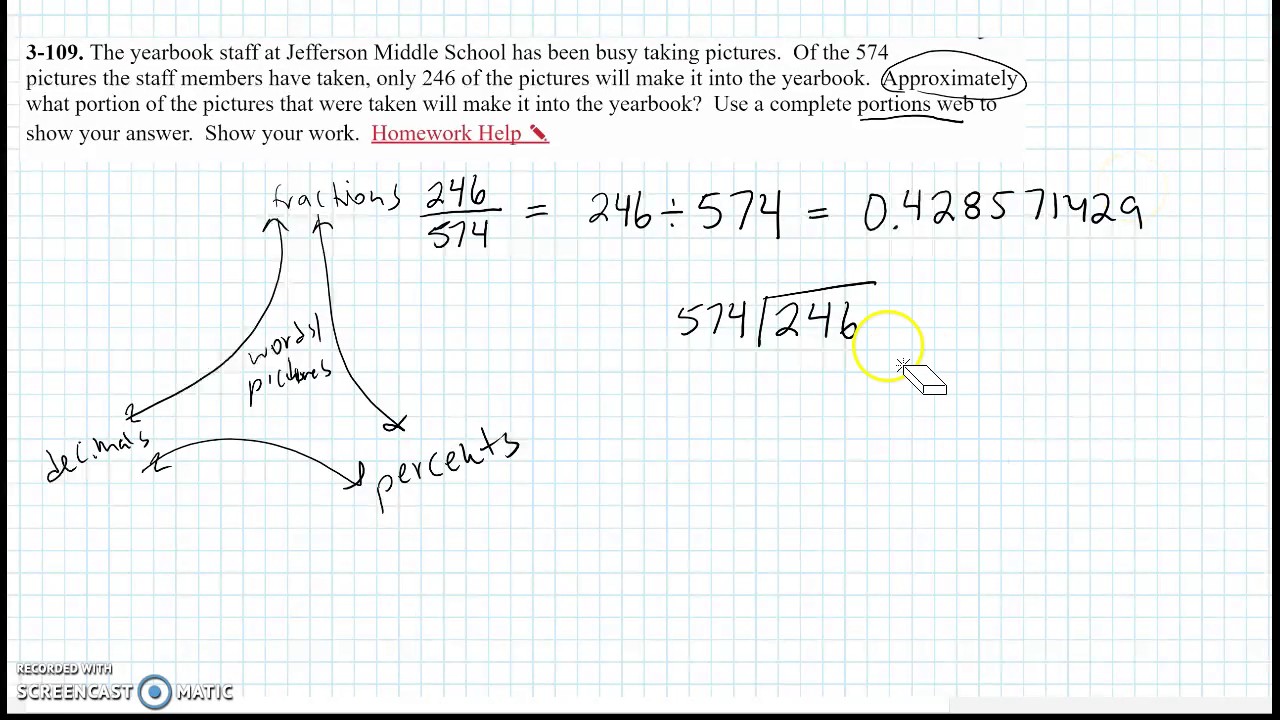 3-109. The yearbook staff at Jefferson Middle School has been busy taking pictures. Of the 574
pictures the staff members have taken, only 246 of the pictures will make it into the yearbook. Approximately
what portion of the pictures that were taken will make it into the yearbook? Use a complete portions web to
show your answer. Show your work. Homework Help
fractions 246/574 = 246 ÷ 574 = 0.428571429
574 246
words/
pictures
decimals
percents
RECORDED WITH
SCREENCAST MATIC